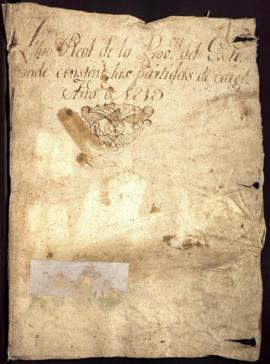 Libro Real de la Prov.on del Este
donde constan las partidas de cargo
Año d 1819